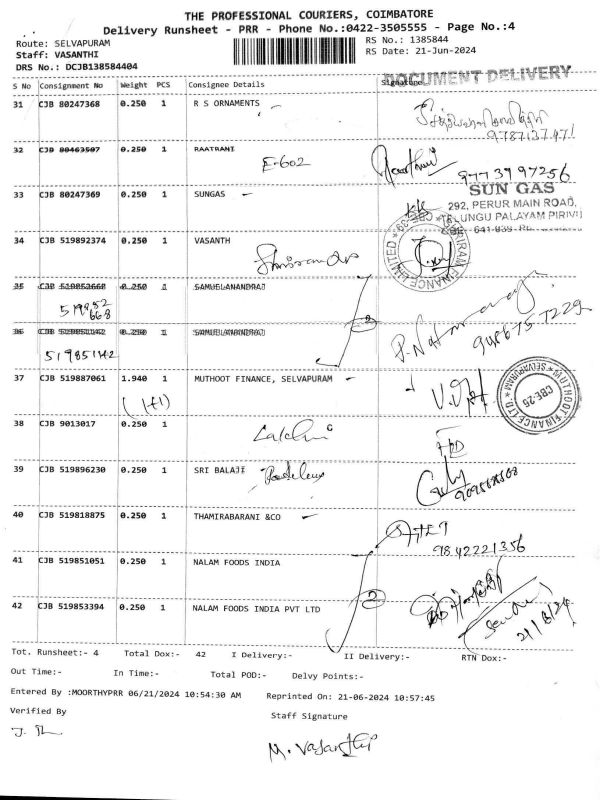 THE PROFESSIONAL COURIERS, COIMBATORE
Delivery Runsheet - PRR - Phone No.:0422-3505555 - Page No.:4
Route: SELVAPURAM
RS No.: 1385844
Staff: VASANTHI
RS Date: 21-Jun-2024
DRS No.: DCJB138584404
DOCUMENT DELIVERY
S No Consignment No Weight PCS Consignee Details Signature
31 CJB 80247368 0.250 1 R S ORNAMENTS
9787137471
32 CJB 80463507 0.250 1 RAATRANI
E-602
9773997256
33 CJB 80247369 0.250 1 SUNGAS
SUN GAS
292, PERUR MAIN ROAD,
TELUNGU PALAYAM PIRIVU
34 CJB 519892374 0.250 1 VASANTH
SHRIRAM FINANCE LIMITED * CBE-39 *
35 CJB 519852668 0.250 1 SAMUELANANDRAJ
519852
668
2
36 CJB 519851142 0.250 1 SAMUELANANDRAJ
519851142
P. Nataraj
37 CJB 519887061 1.940 1 MUTHOOT FINANCE, SELVAPURAM
(1+1)
MUTHOOT FINANCE LTD * SELVAPURAM *
CBE-25
38 CJB 9013017 0.250 1
39 CJB 519896230 0.250 1 SRI BALAJI
40 CJB 519818875 0.250 1 THAMIRABARANI &CO
9842221356
41 CJB 519851051 0.250 1 NALAM FOODS INDIA
2
42 CJB 519853394 0.250 1 NALAM FOODS INDIA PVT LTD
21/6/24
Tot. Runsheet:- 4 Total Dox:- 42 I Delivery:- II Delivery:- RTN Dox:-
Out Time:- In Time:- Total POD:- Delvy Points:-
Entered By :MOORTHYPRR 06/21/2024 10:54:30 AM Reprinted On: 21-06-2024 10:57:45
Verified By
Staff Signature
M. Vasanthi